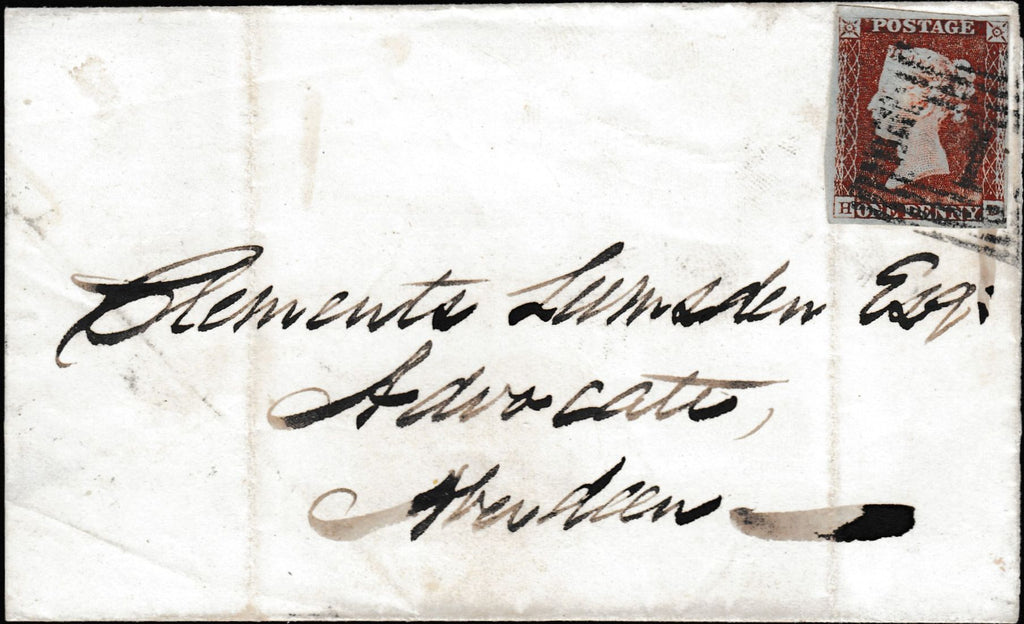 POSTAGE
H ONE PENNY
Clements Lumsden Esqr
Advocate,
Aberdeen